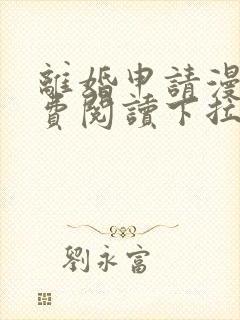 離婚申請漫
費閱讀下拉
劉永富